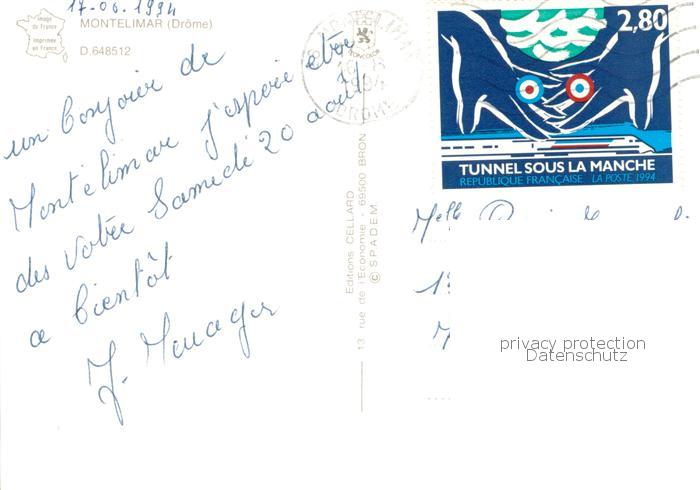 17.06.1994
image de France
MONTELIMAR (Drôme)
imprimée en France
D.648512
un bonjour de
Montélimar j'espère être
des votre Samedi 20 août
a bientôt
J.
Editions CELLARD
13 rue de l'Economie - 69500 BRON
© SPADEM
2,80
TUNNEL SOUS LA MANCHE
REPUBLIQUE FRANÇAISE LA POSTE 1994
1994
DROME
Melle
privacy protection
Datenschutz